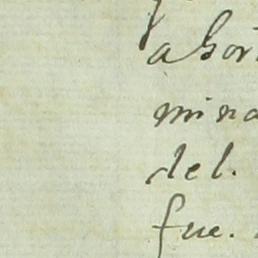 abort
mina
del.
fue.